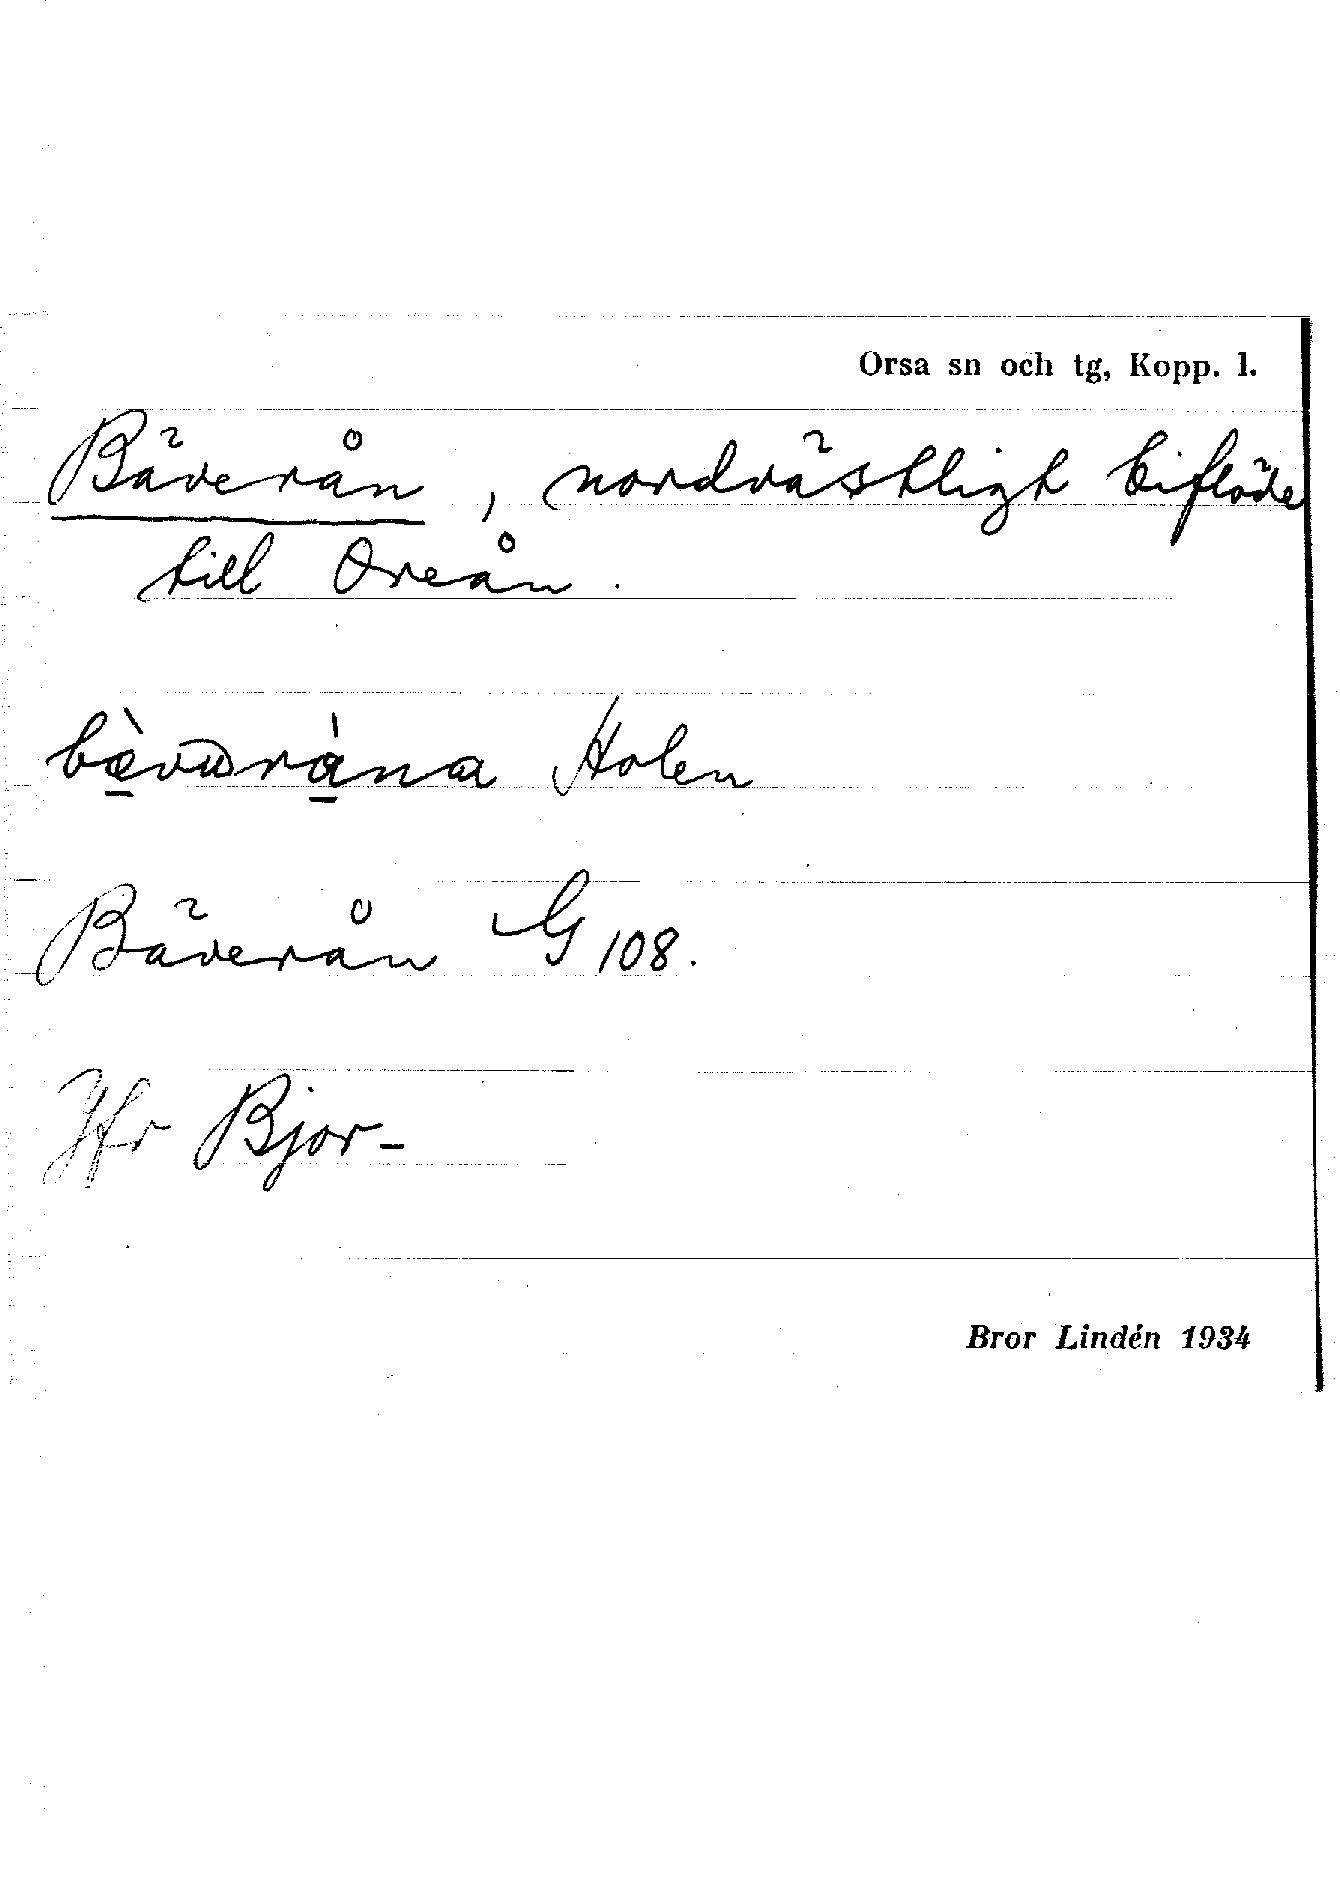 Orsa sn och tg, Kopp. l.
Bäverån, nordvästligt biflöde
till Oreån.
Holen
Bäverån G 108.
Jfr Bjor-
Bror Lindén 1934